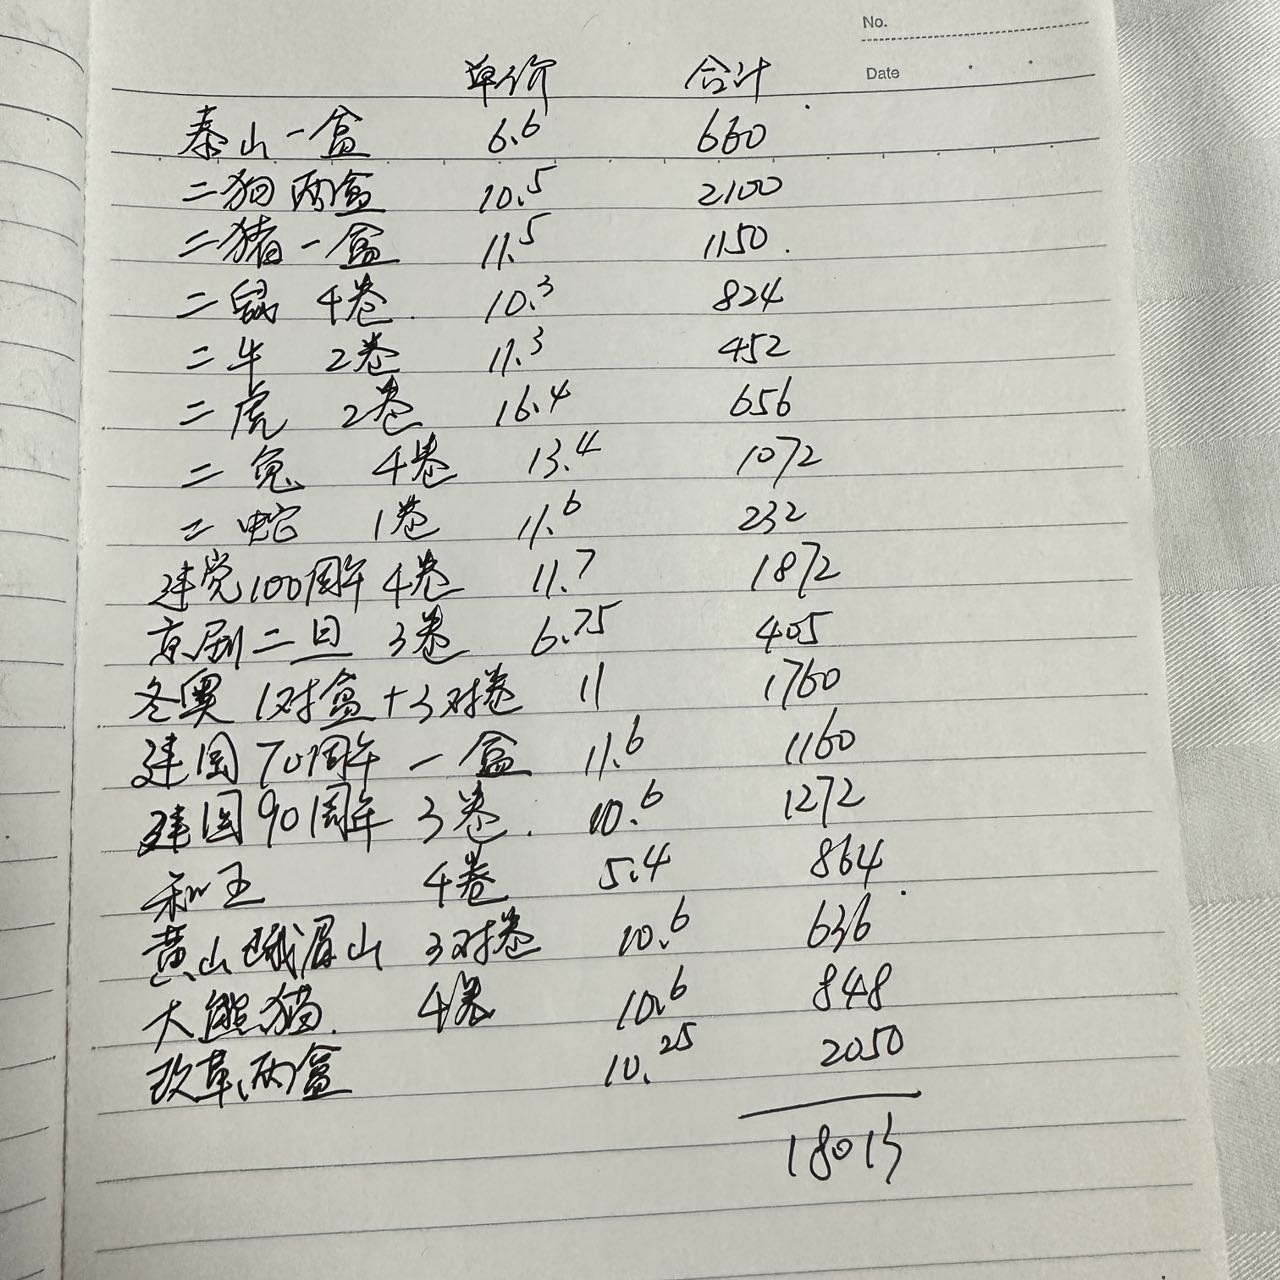 No.
Date
单价 合计
泰山一盒 6.6 660
二狗两盒 10.5 2100
二猪一盒 11.5 1150.
二鼠 4卷. 10.3 824
二牛 2卷 11.3 452
二虎 2卷 16.4 656
二兔 4卷 13.4 1072
二蛇 1卷 11.6 232
建党100周年4卷 11.7 1872
京剧二旦 3卷 6.75 405
冬奥 1对盒+3对卷 11 1760
建国70周年 一盒 11.6 1160
建国90周年 3卷. 10.6 1272
和五 4卷 5.4 864
黄山峨眉山 3对卷 10.6 636
大熊猫. 4卷 10.6 848
改革两盒 10.25 2050
18013